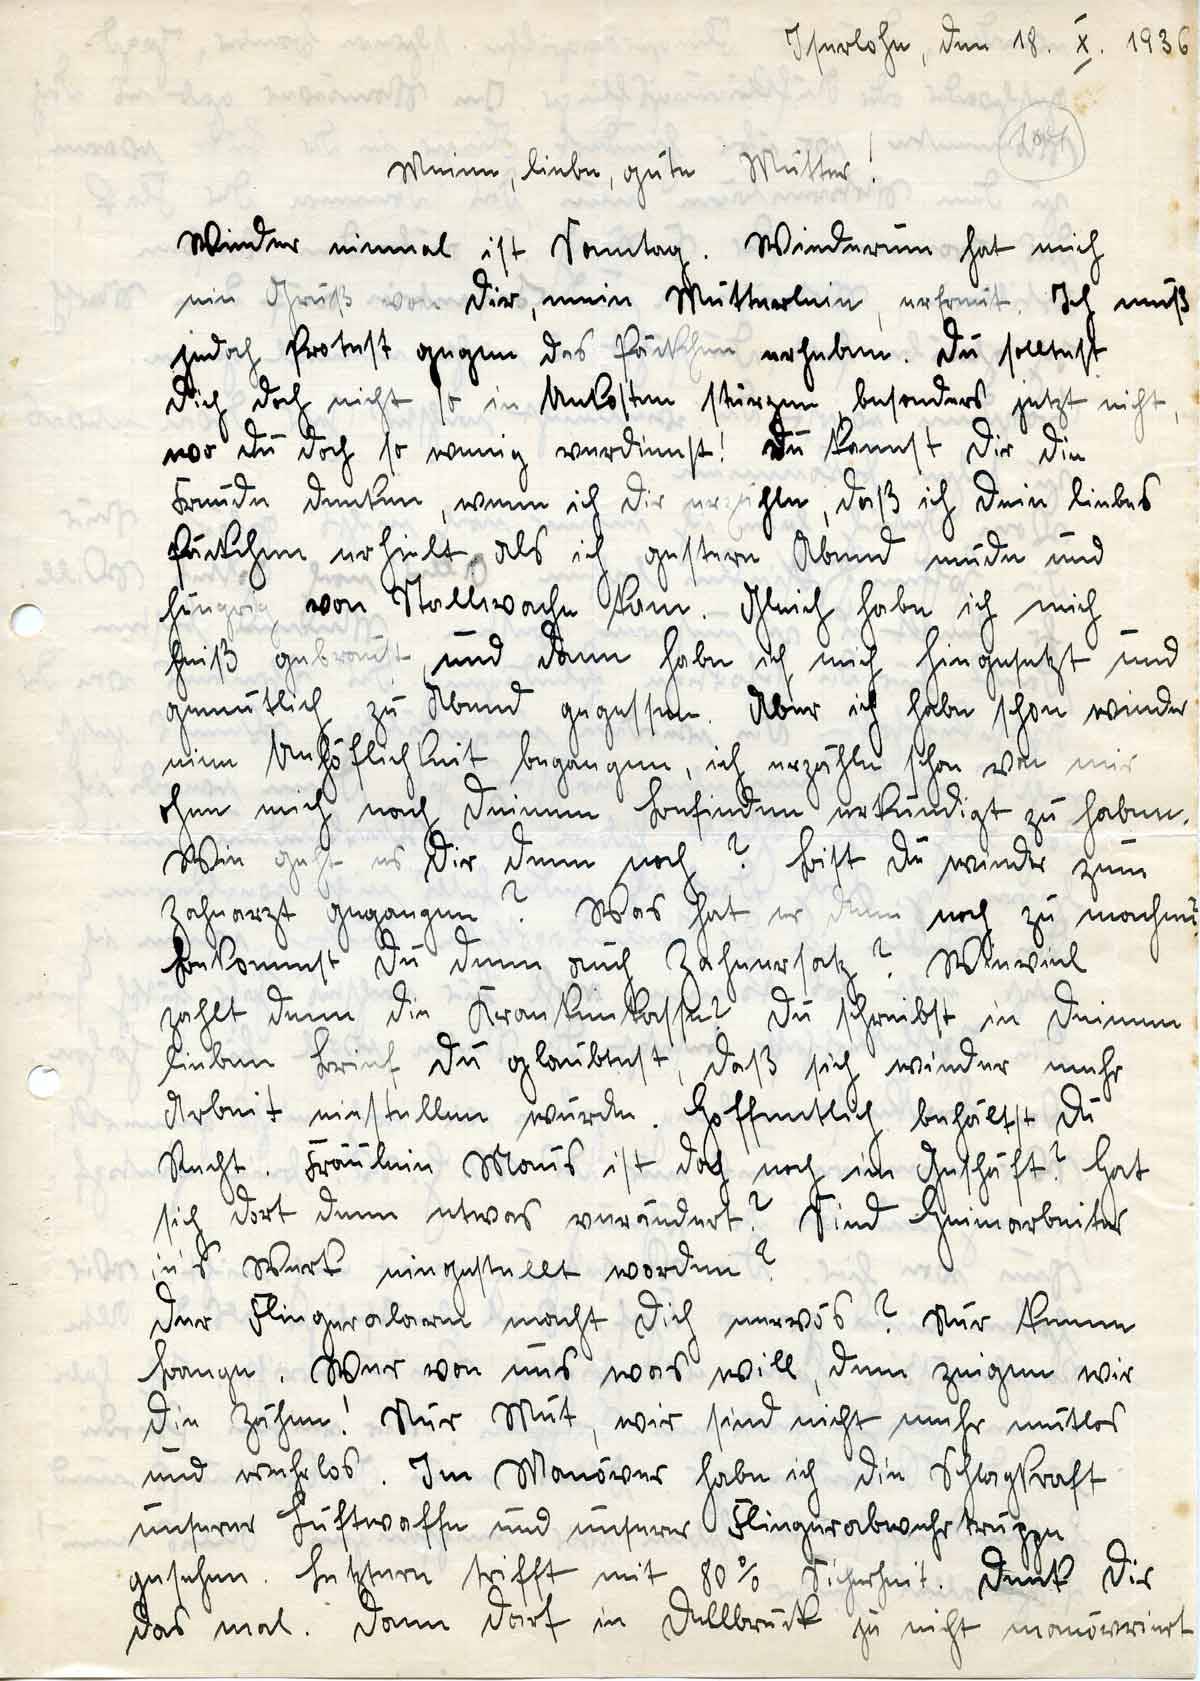 Iserlohn, den 18. X. 1936
Meine, liebe, gute Mutter!
Wieder einmal ist Sonntag. Wiederum hat mich
ein Gruß von Dir, mein Mütterlein, erfreut. Ich muß
jedoch Protest gegen das Päckchen erheben. Du solltest
Dich doch nicht so in Unkosten stürzen, besonders jetzt nicht,
wo Du doch so wenig verdienst! Du kannst Dir die
Freude denken, wenn ich Dir erzähle, daß ich Dein liebes
Päckchen erhielt, als ich gestern Abend müde und
hungrig von Stallwache kam. Gleich habe ich mich
heiß gebraust und dann habe ich mich hingesetzt und
gemütlich zu Abend gegessen. Aber ich habe schon wieder
eine Unhöflichkeit begangen, ich erzähle schon von mir
ohne mich nach Deinem Befinden erkundigt zu haben.
Wie geht es Dir denn noch? Bist Du wieder zum
Zahnarzt gegangen? Was hat er denn noch zu machen?
Bekommst Du denn auch Zahnersatz? Wieviel
zahlt denn die Krankenkasse? Du schreibst in Deinem
lieben Brief Du glaubtest, daß sich wieder mehr
Arbeit einstellen würde. Hoffentlich behältst Du
Recht. Fräulein Maus ist doch noch im Geschäft? Hat
sich dort denn etwas verändert? Sind Heimarbeiter
in's Werk eingestellt worden?
Der Fliegeralarm macht Dich nervös? Nur keine
Bange. Wer von uns was will, dem zeigen wir
die Zähne! Nur Mut, wir sind nicht mehr mutlos
und wehrlos. Im Manöver habe ich die Schlagkraft
unserer Luftwaffe und unserer Fliegerabwehrtruppe
gesehen. Letztere trifft mit 80% Sicherheit. Denk Dir
das mal. Dann darf in Dellbrück ja nicht manövriert